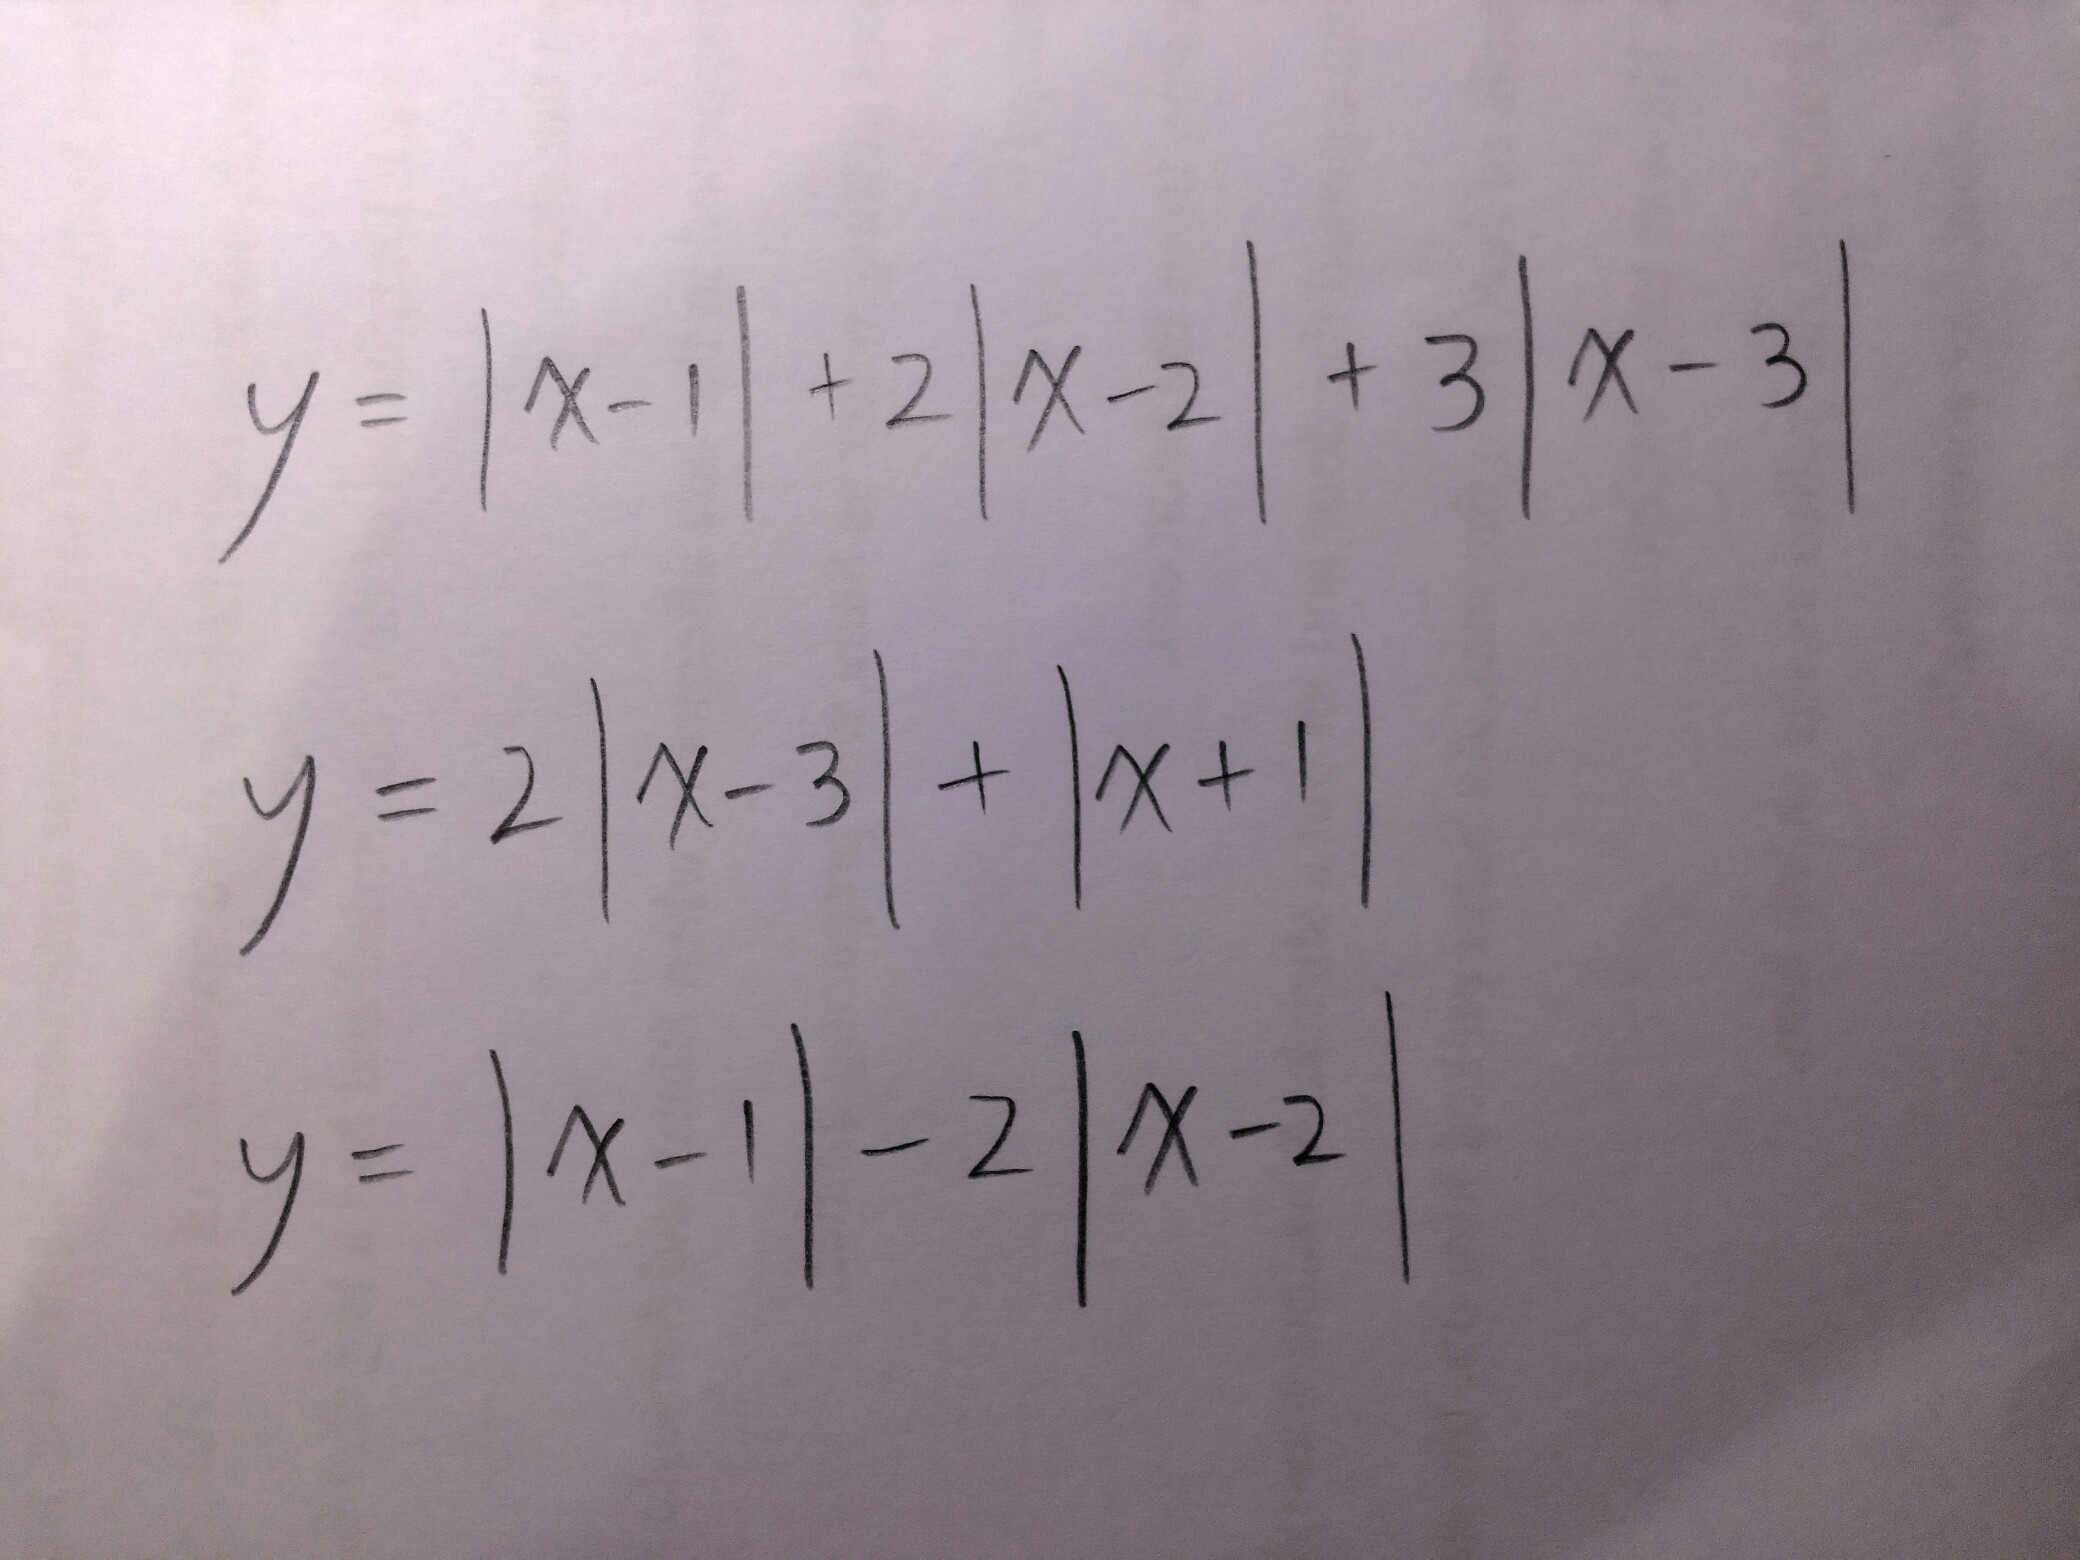 y = |x-1| + 2|x-2| + 3|x-3|
y = 2|x-3| + |x+1|
y = |x-1| - 2|x-2|